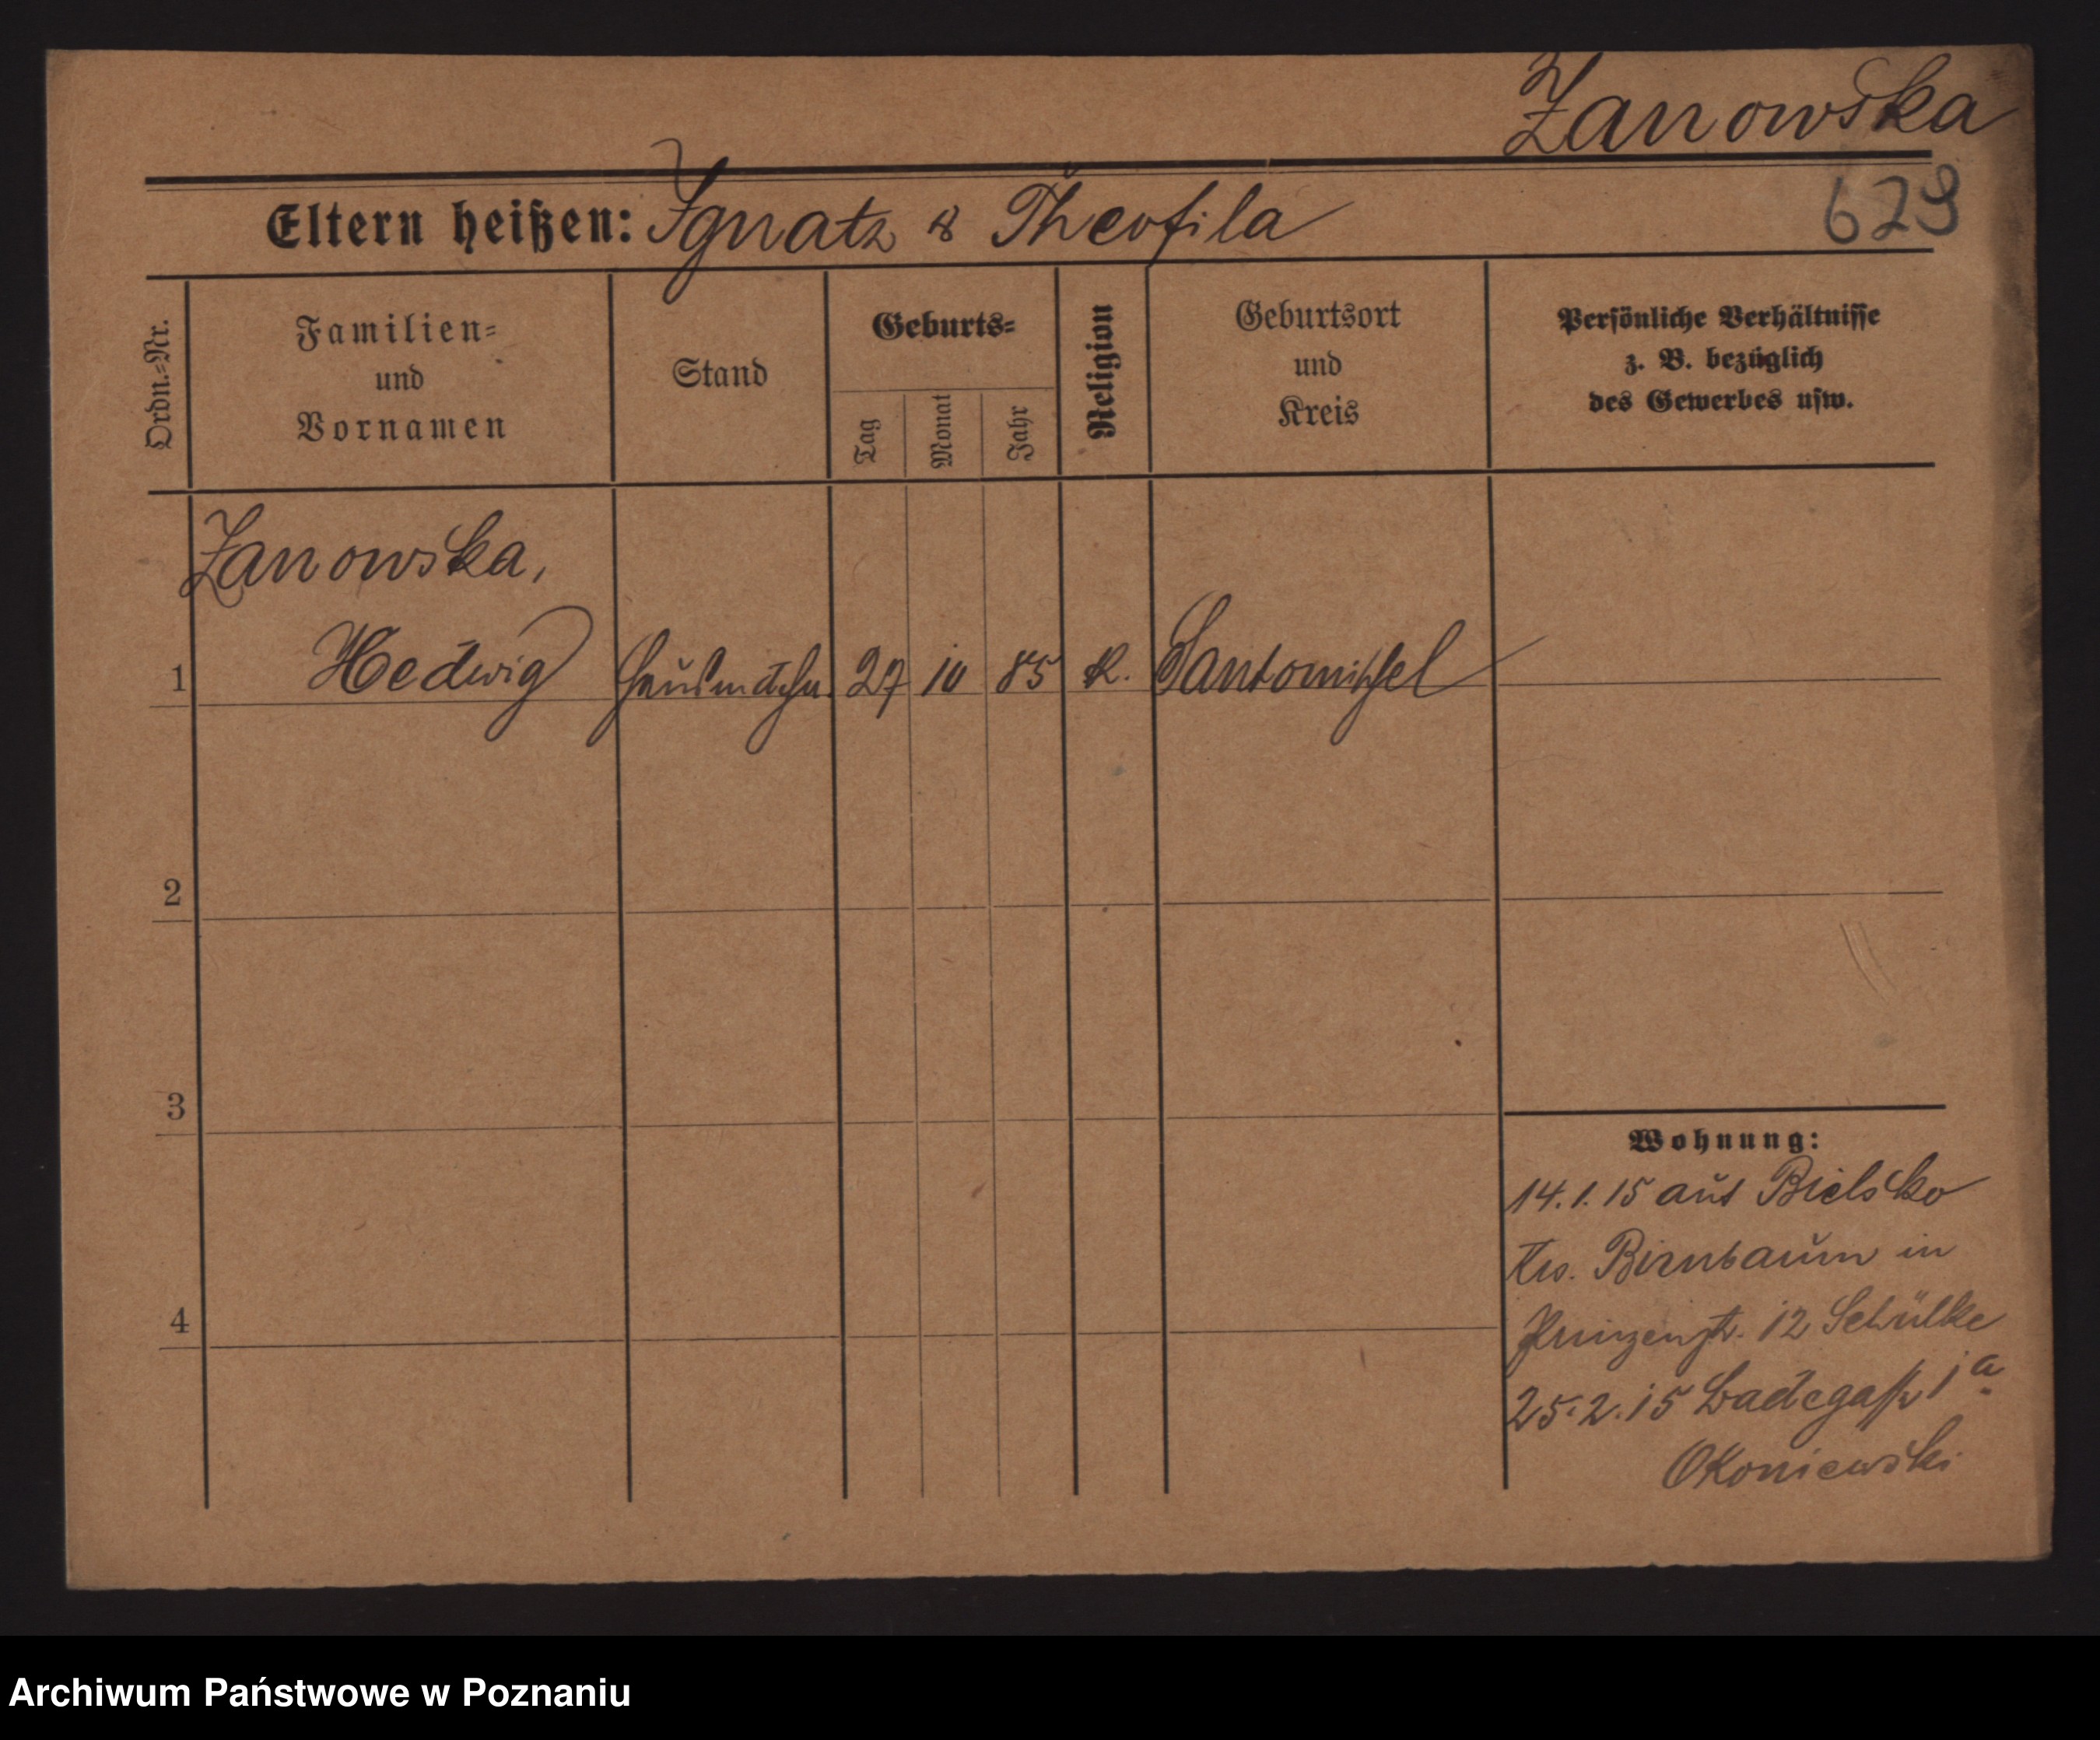 Zanowska
629
Eltern heißen: Ignatz & Theofila
Ordn.=Nr.
Familien=
und
Vornamen
Stand
Geburts=
Tag
Monat
Jahr
Religion
Geburtsort
und
Kreis
Persönliche Verhältnisse
z. B. bezüglich
des Gewerbes usw.
Zanowska,
1 Hedwig Hausmdchn. 27 10 85 K. Santomischel
2
3
4
Wohnung:
14.1.15 aus Bielsko
Krs. Birnbaum in
Prinzenstr. 12 Schülke
25.2.15 Badegasse 1a
Okoniewski
Archiwum Państwowe w Poznaniu